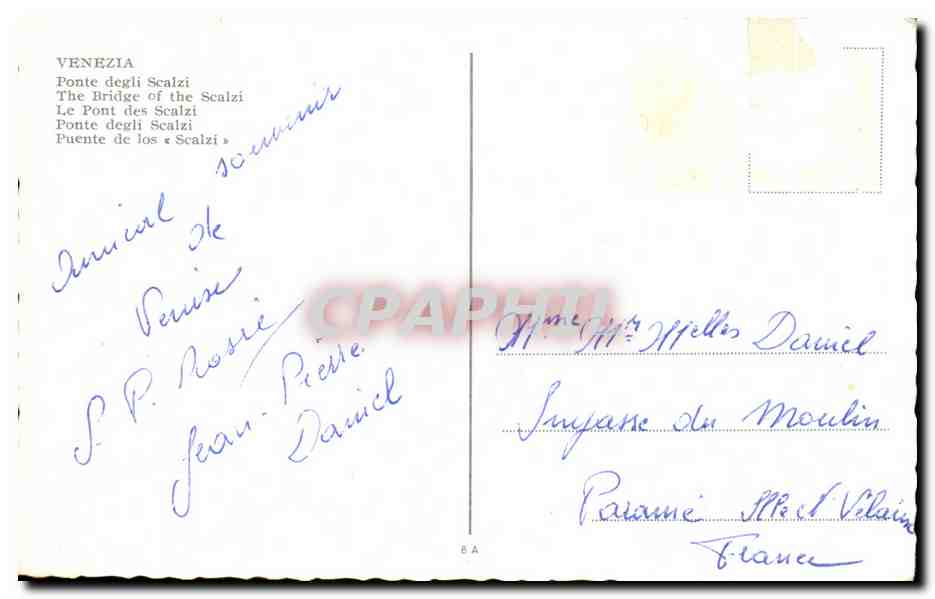 VENEZIA
Ponte degli Scalzi
The Bridge of the Scalzi
Le Pont des Scalzi
Ponte degli Scalzi
Puente de los « Scalzi »
Amical souvenir
de
Venise
Jean-Pierre
Daniel
CPAPHIL
Mme Mr Melles Daniel
Impasse du Moulin
Paramé Ille et Vilaine
France
8 A